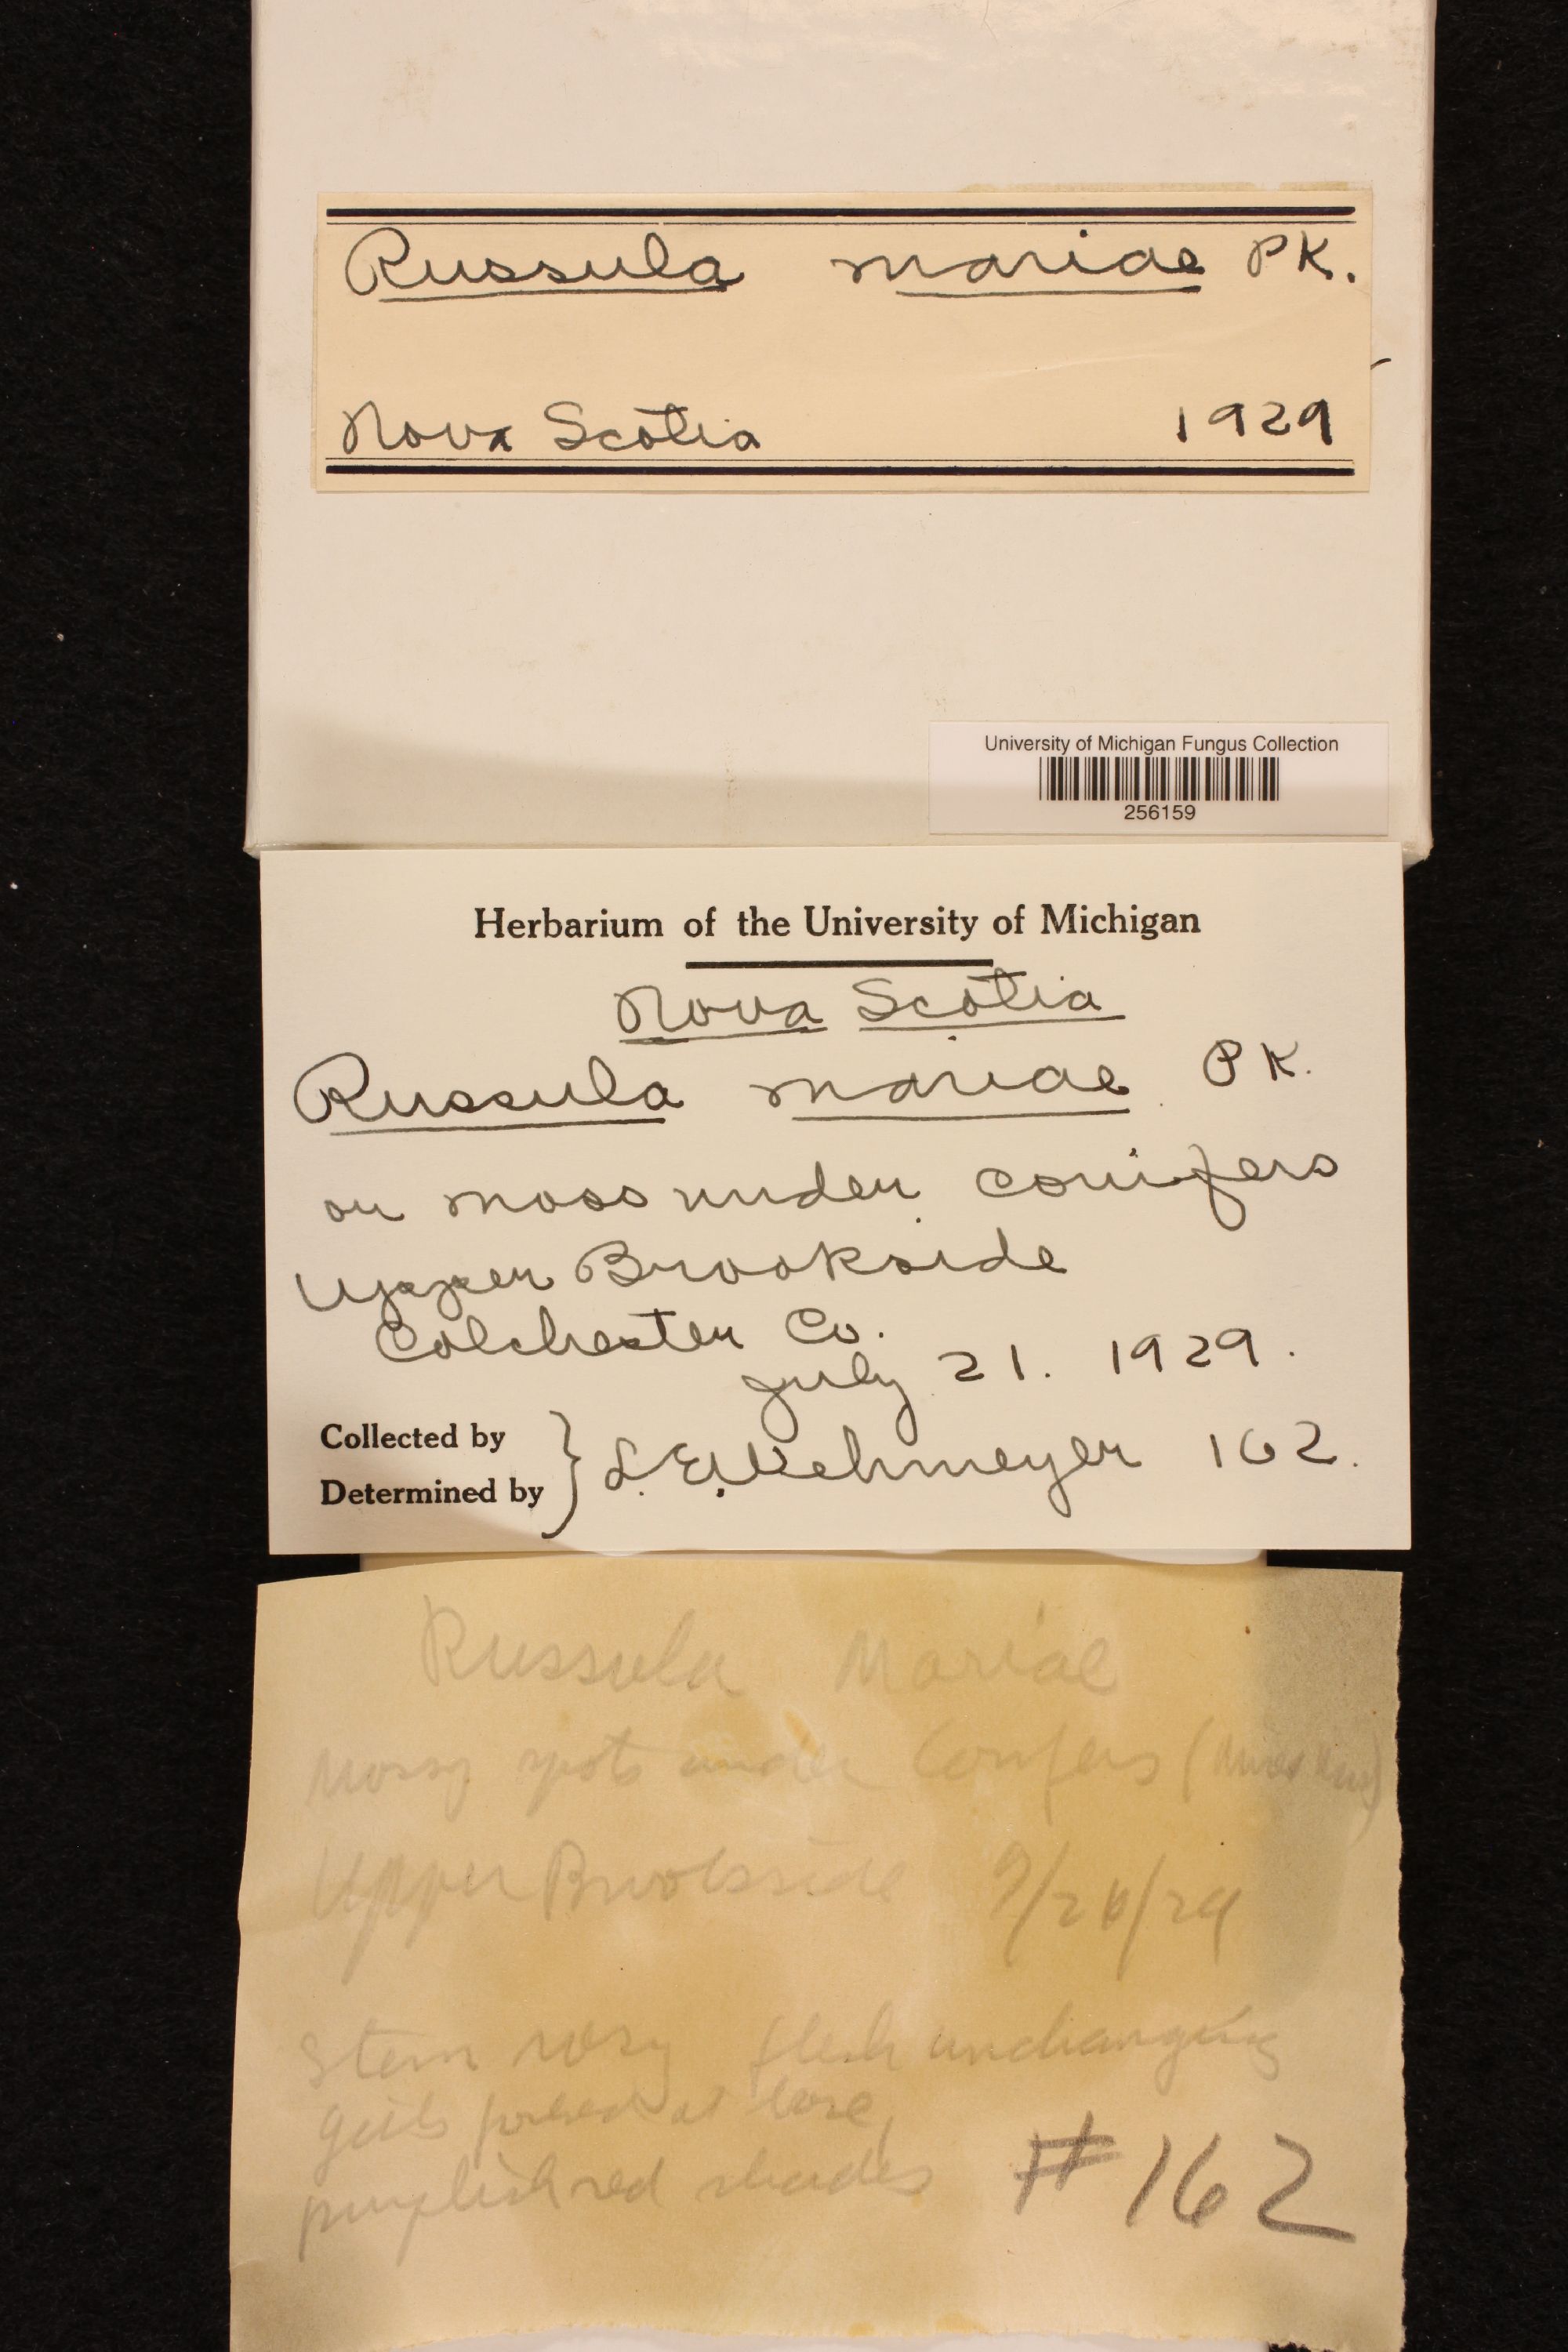 Russula mariae PK.
Nova Scotia 1929
University of Michigan Fungus Collection
256159
Herbarium of the University of Michigan
Nova Scotia
Russula mariae PK.
on moss under conifers
Upper Brookside
Colchester Co.
July 21. 1929.
Collected by
Determined by } L. E. Wehmeyer 162.
Russula Mariae
Mossy spots under Conifers
Upper Brookside
Stem rosy flesh unchanging
gills forked at base,
purplish red shades
#162